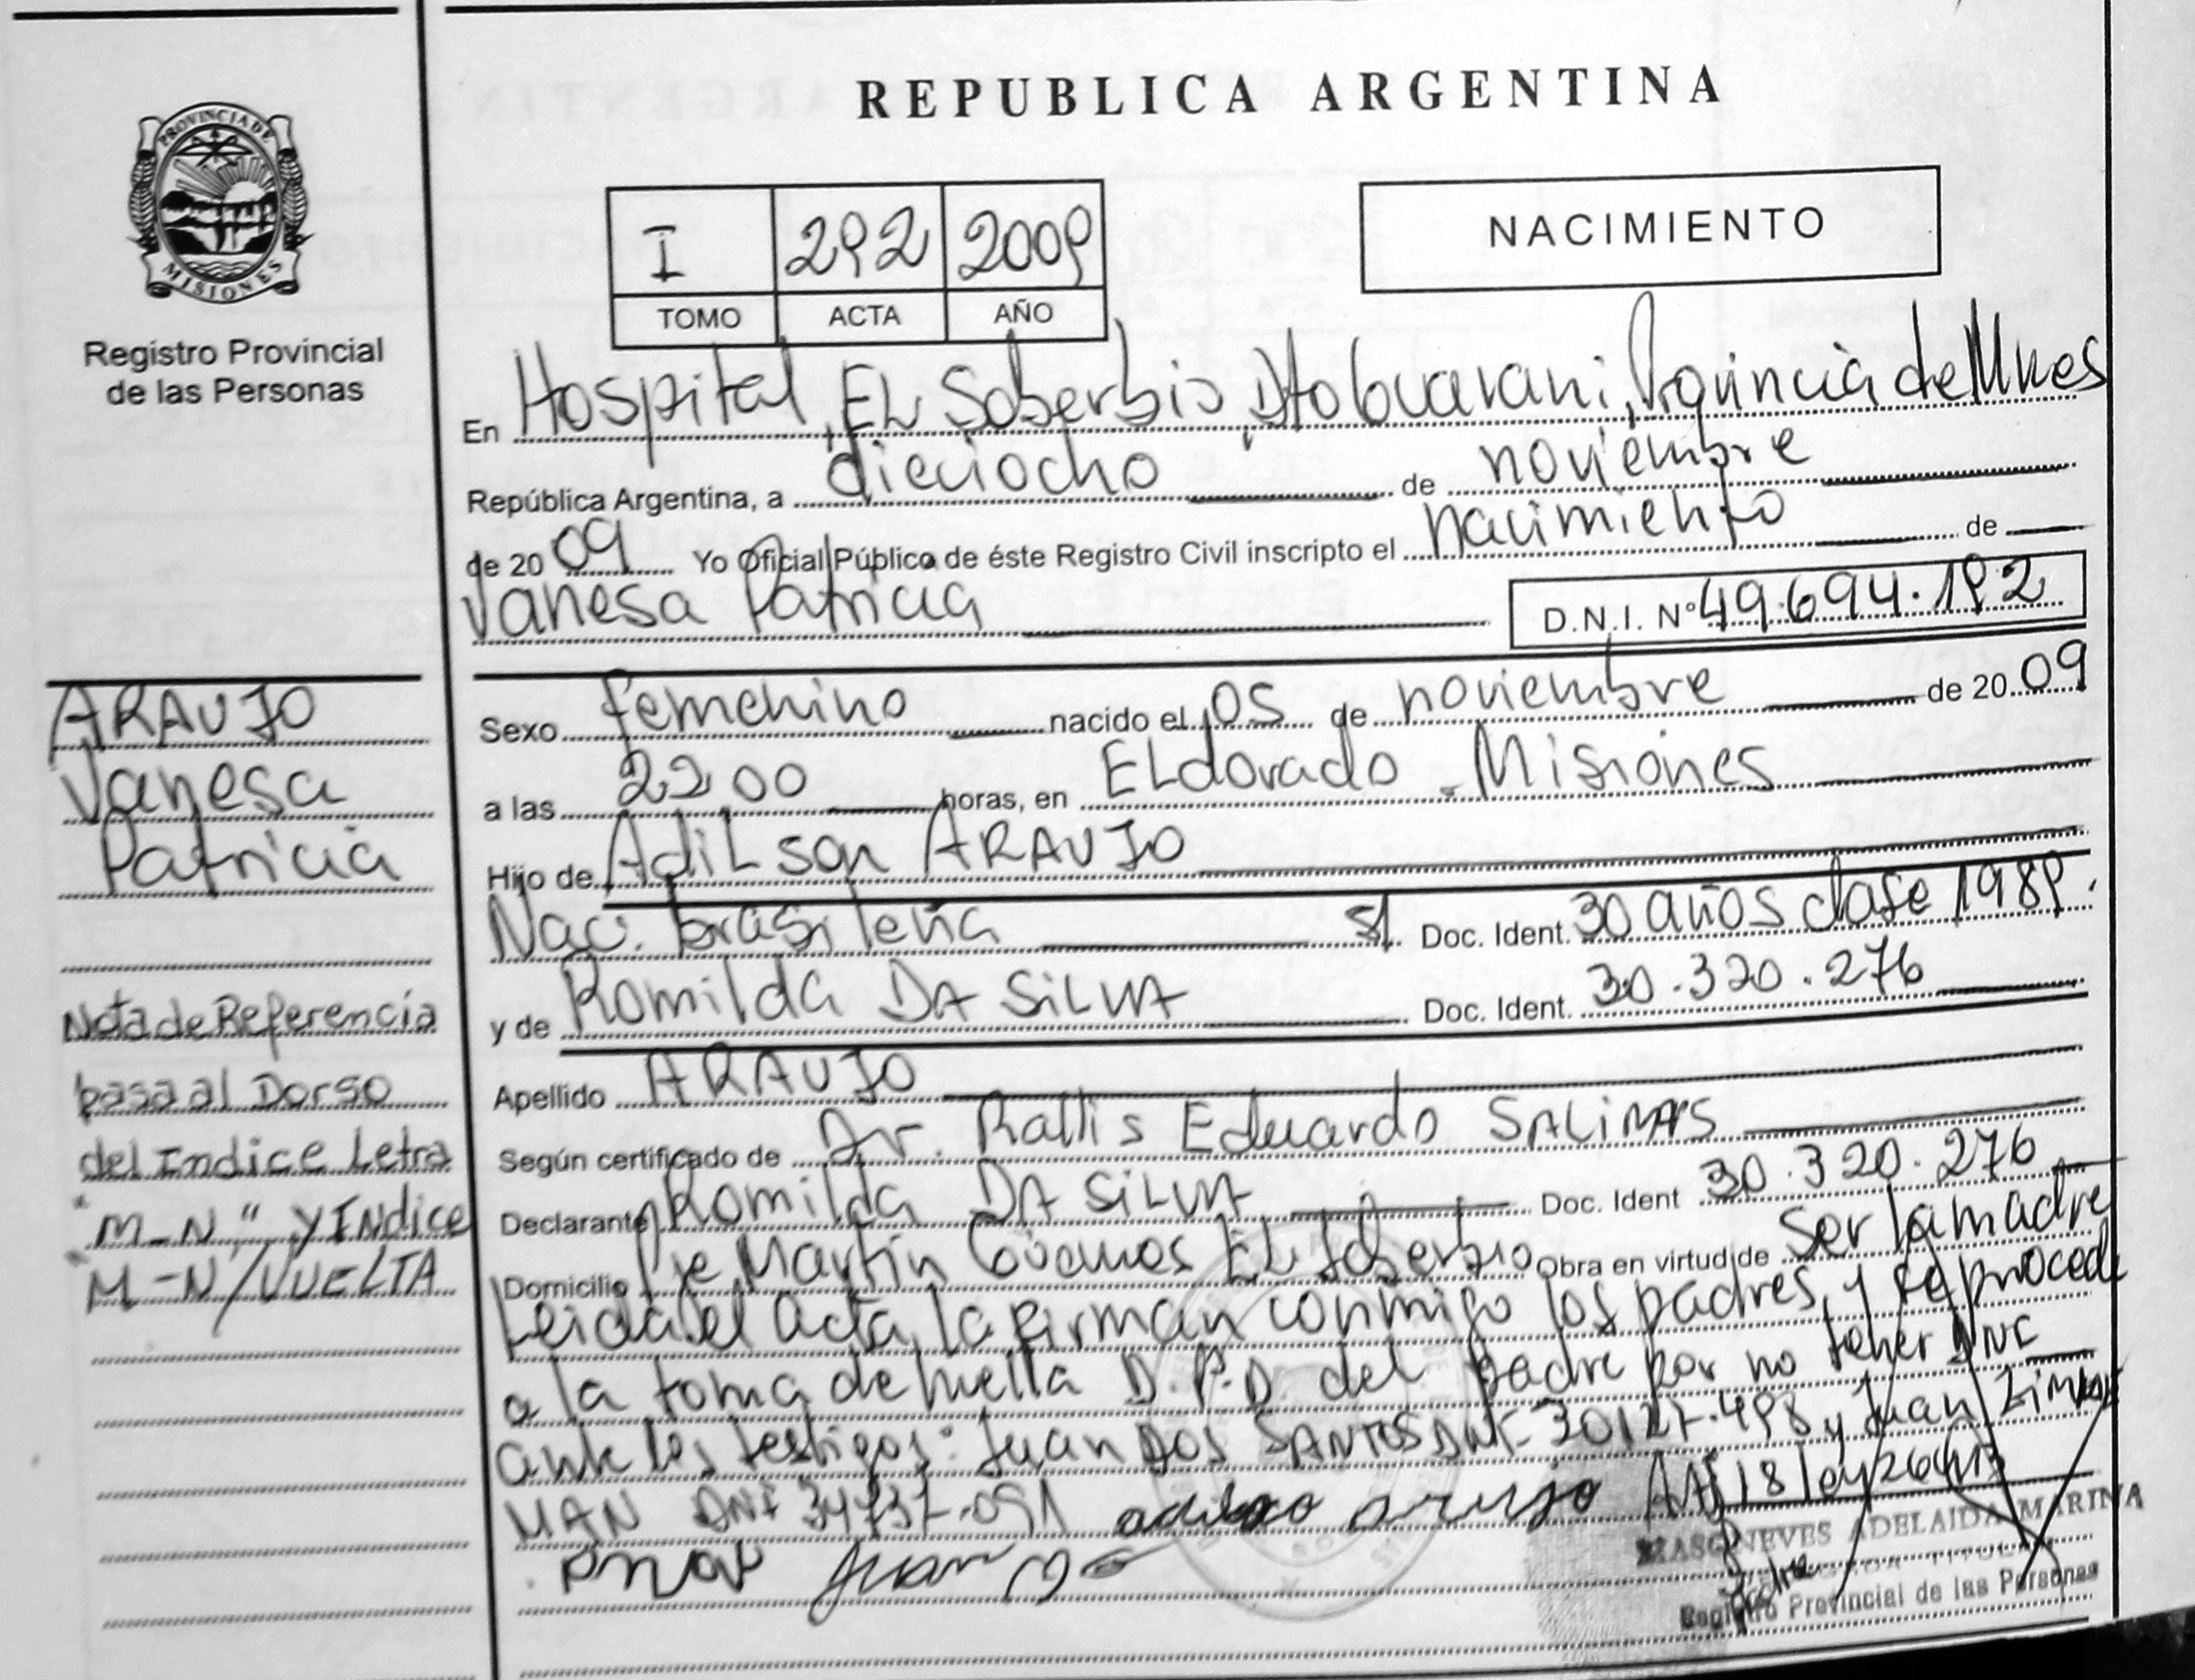 REPUBLICA ARGENTINA
PROVINCIA DE
MISIONES
Registro Provincial
de las Personas
I 292 2009
TOMO ACTA AÑO
NACIMIENTO
En Hospital, EL Soberbio, Dto Guarani, Provincia de Mnes
República Argentina, a dieciocho de noviembre
de 2009 Yo Oficial Público de éste Registro Civil inscripto el nacimiento de
Vanesa Patricia D.N.I. Nº 49.694.192
Sexo femenino nacido el 05 de noviembre de 2009
a las 22 00 horas, en ELdorado - Misiones
Hijo de AdiLson ARAUJO
Nac. brasileña s/ Doc. Ident. 30 años clase 1989.
y de Romilda DA SiLVA Doc. Ident. 30.320.276
Apellido ARAUJO
Según certificado de Dr. Rallis Eduardo SALINAS
Declarante Romilda DA SiLVA Doc. Ident 30.320.276
Domicilio Pje Martin Güemes EL Soberbio Obra en virtud de ser la madre
Leida el acta, la firman conmigo los padres, y se procede
a la toma de huella D.P.D. del padre por no tener DNI
ante los testigos: Juan DOS SANTOS DNI- 30127.498 y Juan
MAN DNI 34737.091 araujo
Juan
ADELAIDA MARINA
Registro Provincial de las Personas
ARAUJO
Vanesa
Patricia
Nota de Referencia
pasa al Dorso
del Indice Letra
"M-N" y INdice
M-N/VUELTA